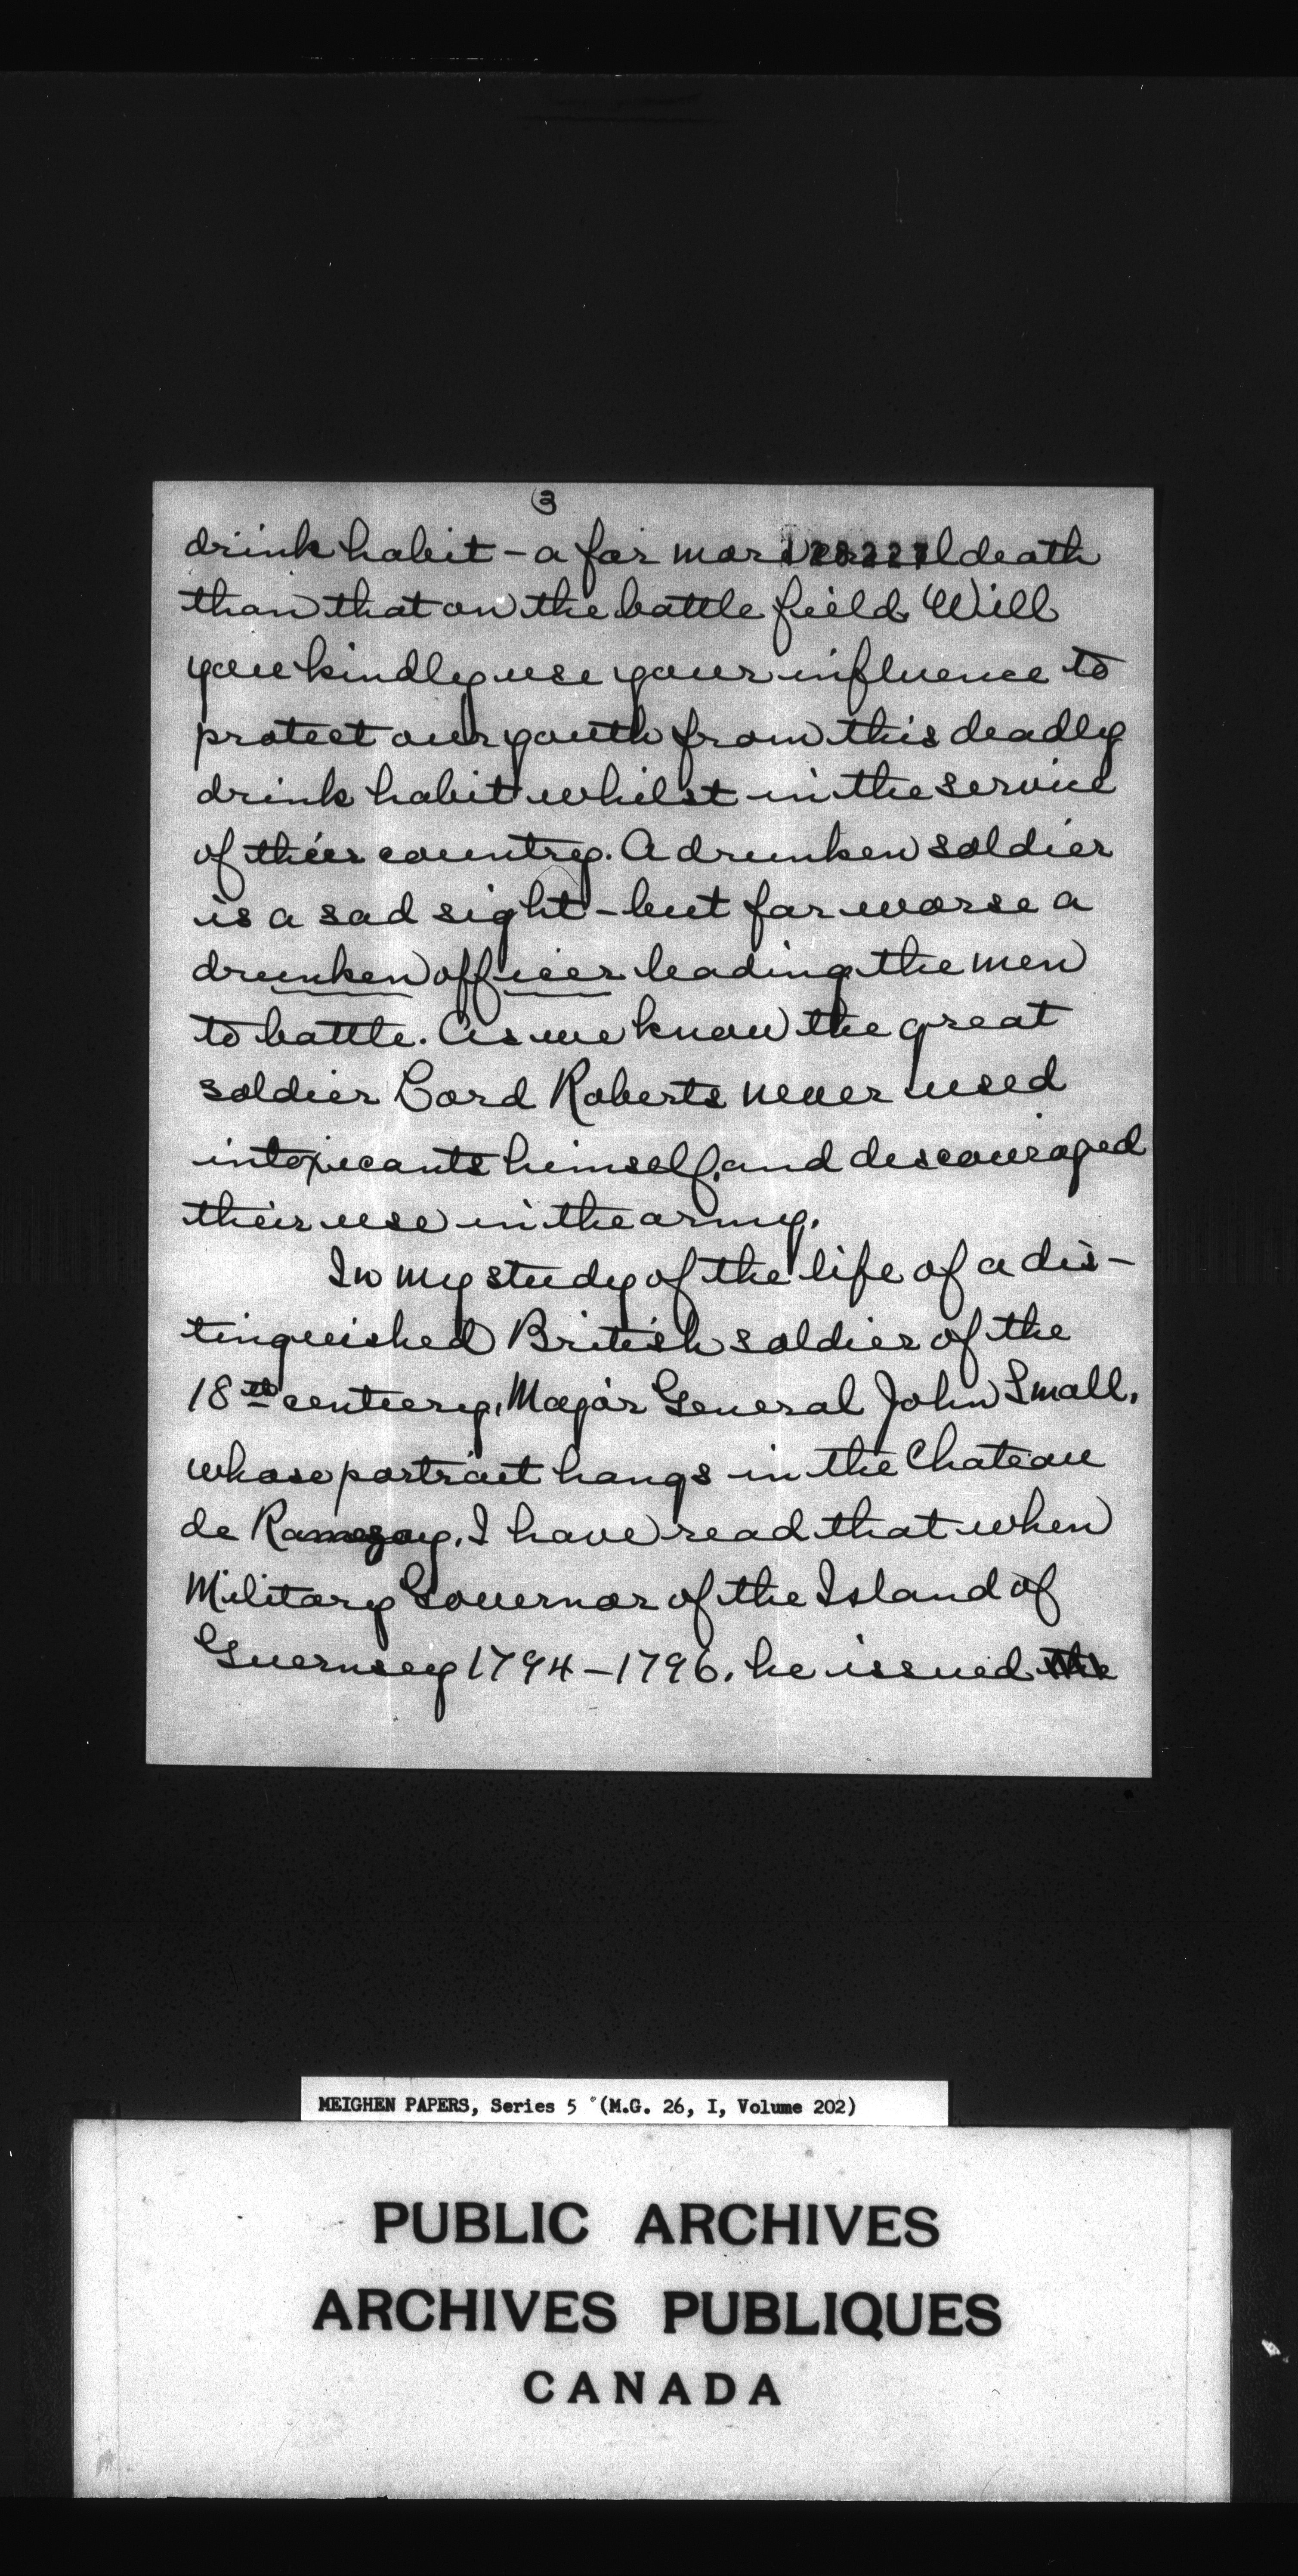 3
drink habit - a far more cruel death
128227
than that on the battle field. Will
you kindly use your influence to
protect our youth from this deadly
drink habit whilst in the service
of their country. A drunken soldier
is a sad sight - but far worse a
drunken officer leading the men
to battle. As we know the great
soldier Lord Roberts never used
intoxicants himself, and discouraged
their use in the army.
In my study of the life of a dis-
tinguished British soldier of the
18th century, Major General John Small,
whose portrait hangs in the Chateau
de Ramezay, I have read that when
Military Governor of the Island of
Guernsey 1794-1796, he issued
MEIGHEN PAPERS, Series 5 (M.G. 26, I, Volume 202)
PUBLIC ARCHIVES
ARCHIVES PUBLIQUES
CANADA